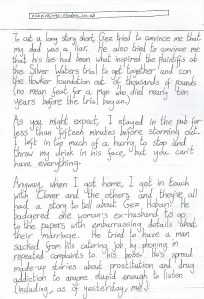 To cut a long story short, Gez tried to convince me that
my dad was a liar. He also tried to convince me
that his lies had been what inspired the plaintiffs at
the Silver Waters trial to get together and con
the Fowker Foundation out of thousands of pounds
(no mean feat for a man who died nearly ten
years before the trial began.)
As you might expect, I stayed in the pub for
less than fifteen minutes before storming out.
I left in too much of a hurry to stop and
throw my drink in his face, but you can't
have everything.
Anyway, when I got home, I got in touch
with Clover and the others and they've all
had a story to tell about Gez Hogan! He
badgered one woman's ex-husband to go
to the papers with embarrassing details about
their marriage. He tried to have a man
sacked from his catering job by phoning in
repeated complaints to his boss. He's spread
made-up stories about prostitution and drug
addiction to anyone stupid enough to listen
(including, as of yesterday, me!).